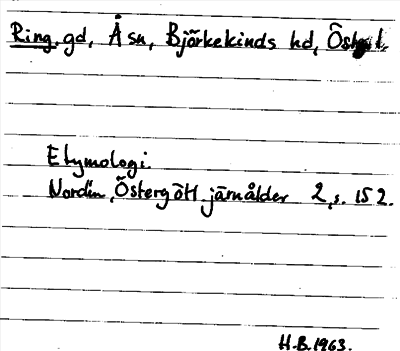 Ring, gd, Å sn, Björkekinds hd, Östergötl.
Etymologi.
Nordén, Östergötl. järnålder 2, s. 152.
H.B. 1963.